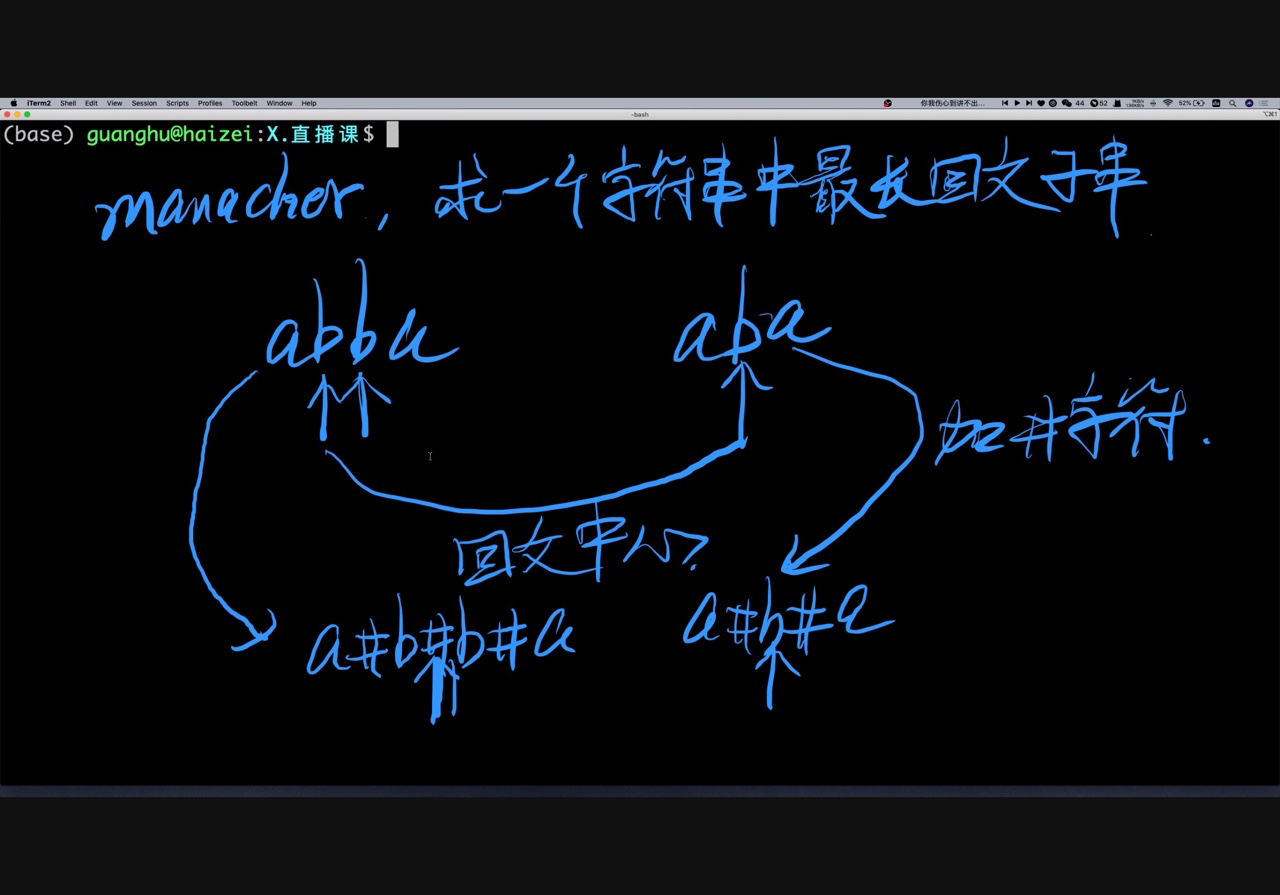 iTerm2 Shell Edit View Session Scripts Profiles Toolbelt Window Help 你我伤心到讲不出... 44 52 52%
-bash
(base) guanghu@haizei:X.直播课$
manacher, 求一个字符串中最长回文子串
abba aba
加#字符.
回文中心?
a#b#b#a a#b#a